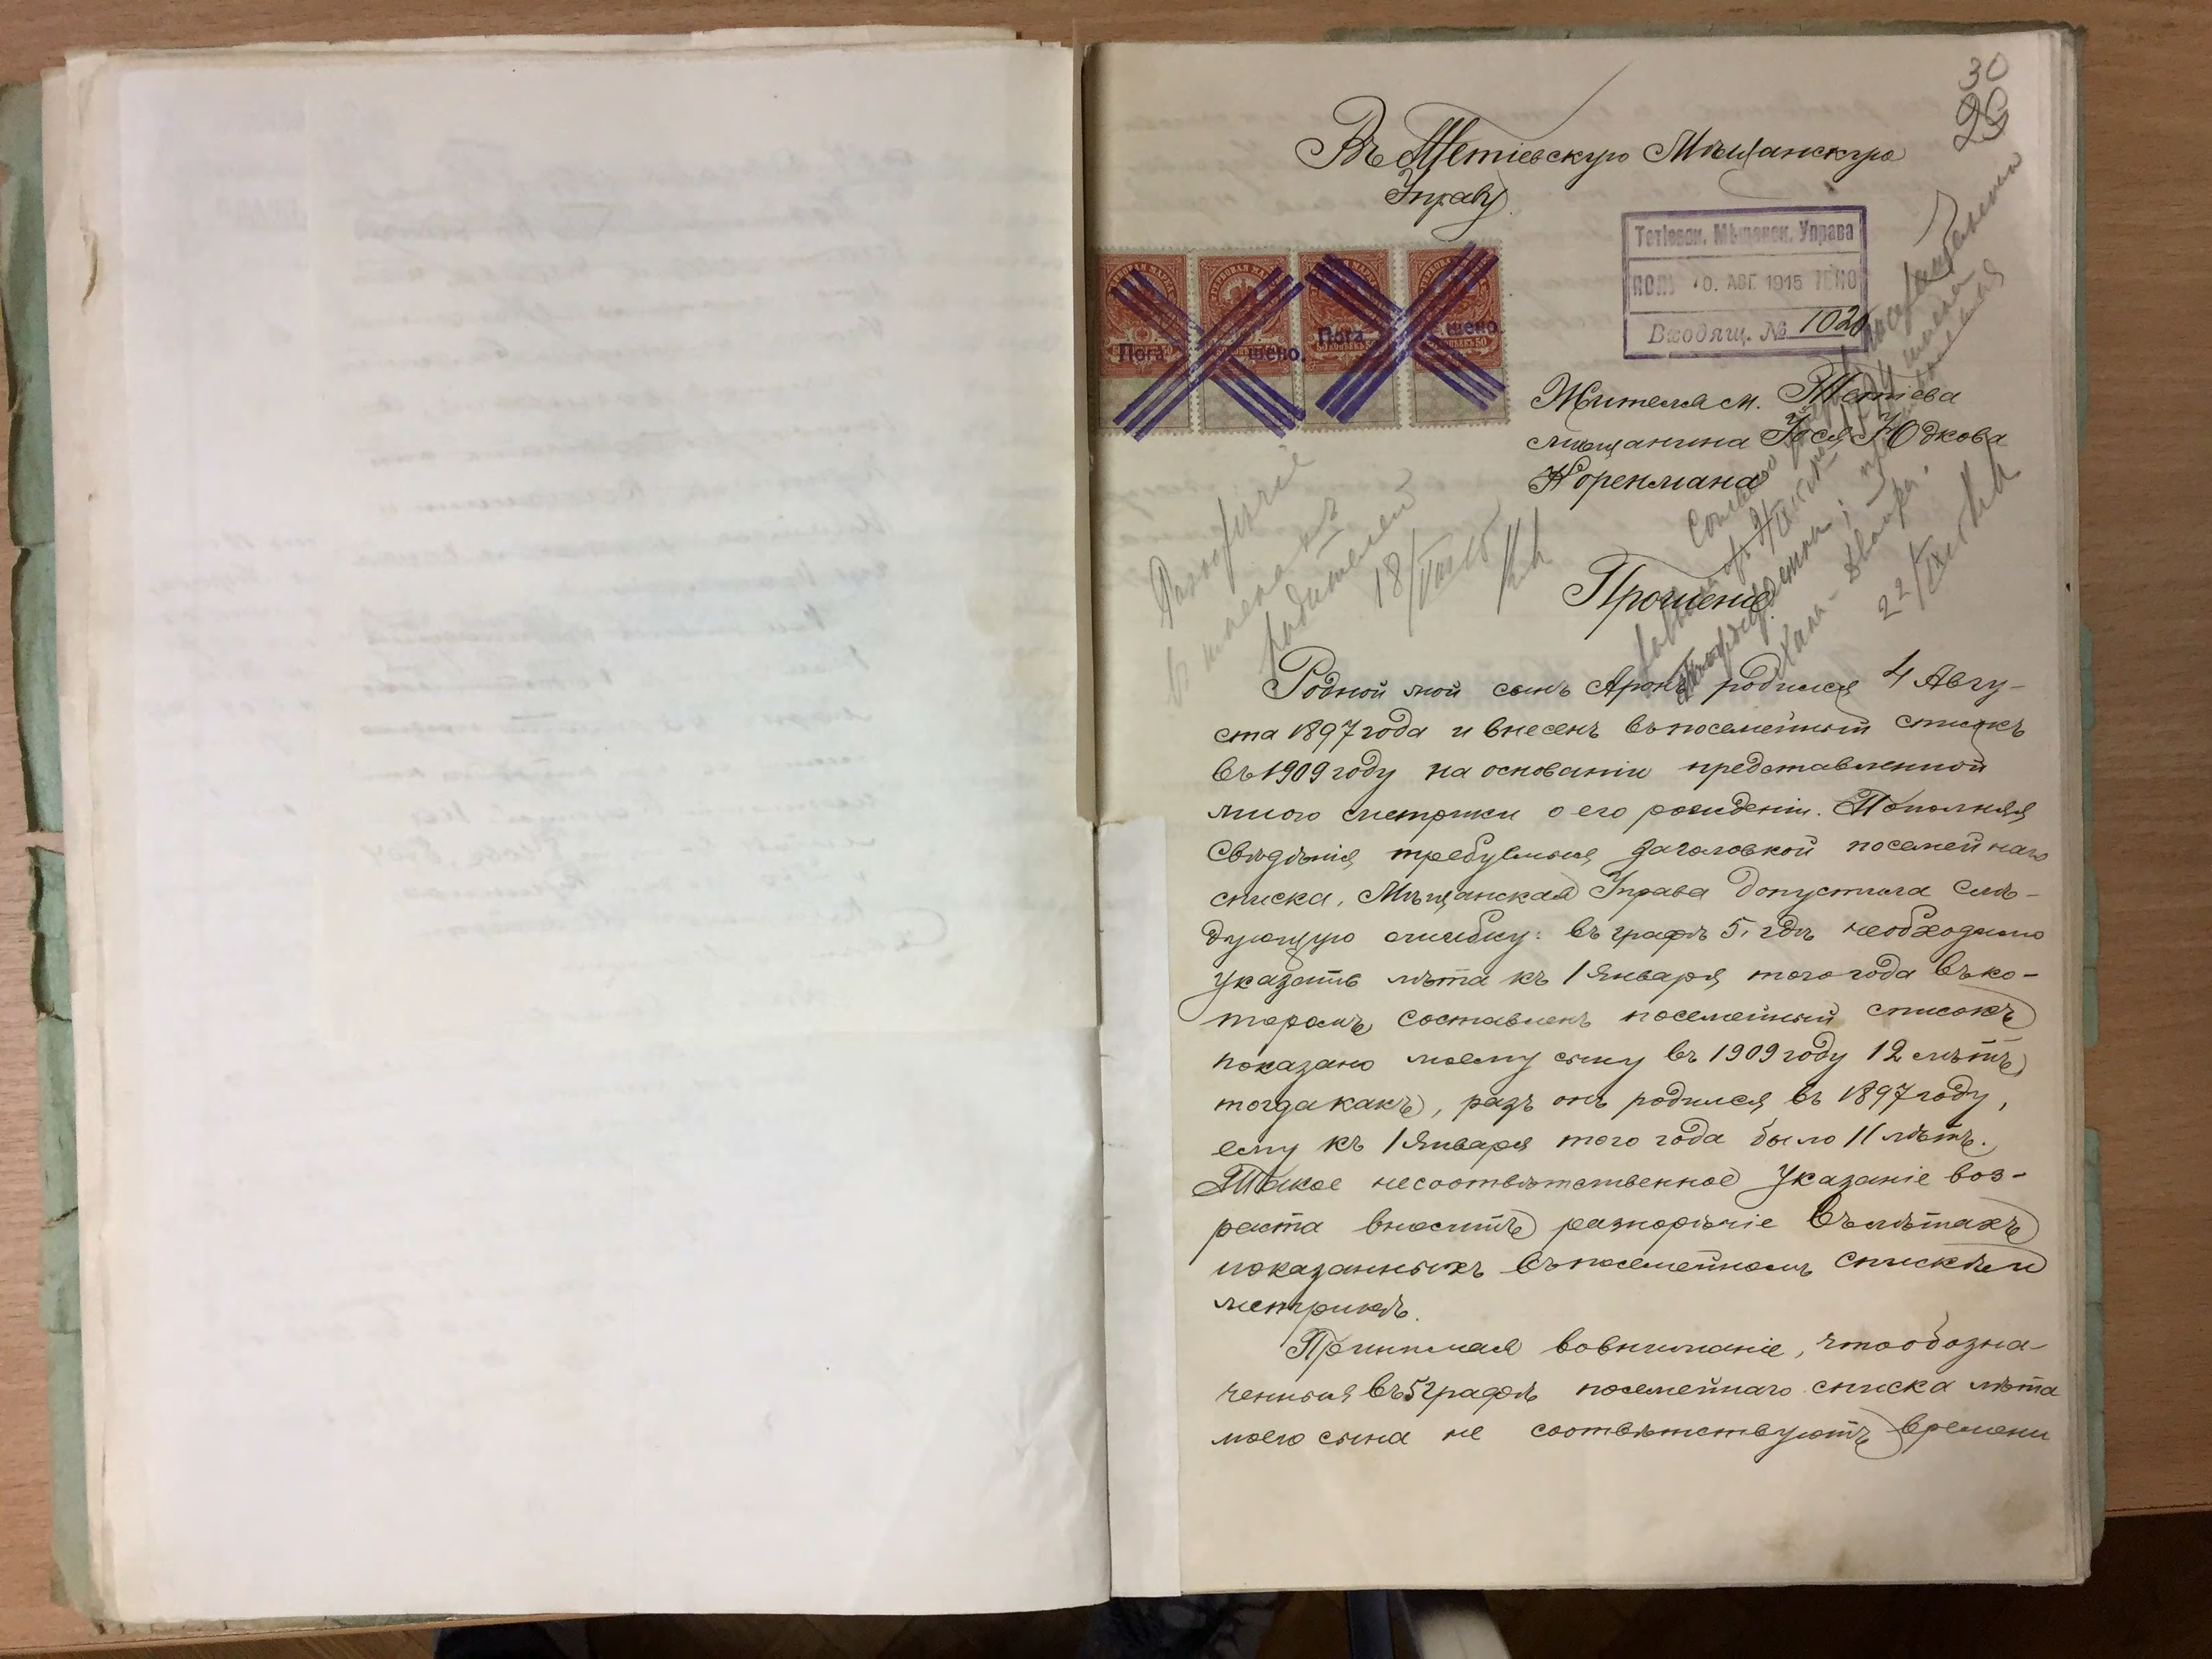 30
29
Въ Тетіевскую Мѣщанскую
Управу.
Тетіевск. Мѣщанск. Управа
ПОЛУ 10. АВГ. 1915 ЧЕНО
Входящ. № 1020
Пога шено. Пога шено.
Жителя м. Тетіева
мѣщанина Іося Юдкова
Коренмана
Разнорѣчіе
въ именахъ
родителей
18/VIII 15
Прошеніе.
22/
Родной мой сынъ Аронъ родился 4 Авгу-
ста 1897 года и внесенъ въ посемейный списокъ
въ 1909 году на основаніи представленной
мною метрики о его рожденіи. Пополняя
свѣдѣнія требуемыя заголовкой посемейнаго
списка, Мѣщанская Управа допустила слѣ-
дующую ошибку: въ графѣ 5, гдѣ необходимо
указать лѣта къ 1 Января того года въ ко-
торомъ составленъ посемейный списокъ
показано моему сыну въ 1909 году 12 лѣтъ,
тогда какъ, разъ онъ родился въ 1897 году,
ему къ 1 Января того года было 11 лѣтъ.
Такое несоотвѣтственное указаніе воз-
раста вноситъ разнорѣчіе въ лѣтахъ
показанныхъ въ посемейномъ спискѣ и
метрикѣ.
Принимая во вниманіе, что обозна-
ченныя въ 5 графѣ посемейнаго списка лѣта
моего сына не соотвѣтствуютъ времени